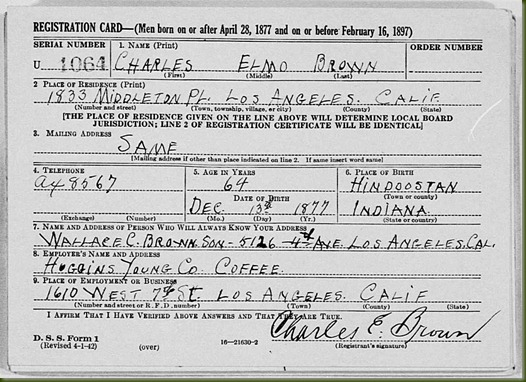 REGISTRATION CARD—(Men born on or after April 28, 1877 and on or before February 16, 1897)
SERIAL NUMBER 1. NAME (Print) ORDER NUMBER
U 1064 CHARLES ELMO BROWN
(First) (Middle) (Last)
2 PLACE OF RESIDENCE (Print)
1833 MIDDLETON PL. LOS ANGELES. CALIF
(Number and street) (Town, township, village, or city) (County) (State)
[THE PLACE OF RESIDENCE GIVEN ON THE LINE ABOVE WILL DETERMINE LOCAL BOARD
JURISDICTION; LINE 2 OF REGISTRATION CERTIFICATE WILL BE IDENTICAL]
3. MAILING ADDRESS
SAME
[Mailing address if other than place indicated on line 2. If same insert word same]
4. TELEPHONE 5. AGE IN YEARS 6. PLACE OF BIRTH
AX 8567 64 HINDOOSTAN
DATE OF BIRTH (Town or county)
DEC. 13th 1877 INDIANA
(Exchange) (Number) (Mo.) (Day) (Yr.) (State or country)
7. NAME AND ADDRESS OF PERSON WHO WILL ALWAYS KNOW YOUR ADDRESS
WALLACE C. BROWN. SON - 5126 - 4th AVE. LOS ANGELES, CAL.
8. EMPLOYER'S NAME AND ADDRESS
HUGGINS YOUNG CO. COFFEE.
9. PLACE OF EMPLOYMENT OR BUSINESS
1610 WEST 7th ST. LOS ANGELES. CALIF
(Number and street or R. F. D. number) (Town) (County) (State)
I AFFIRM THAT I HAVE VERIFIED ABOVE ANSWERS AND THAT THEY ARE TRUE.
Charles E. Brown
D. S. S. Form 1
(Revised 4-1-42) (over) 16—21630-2 (Registrant's signature)